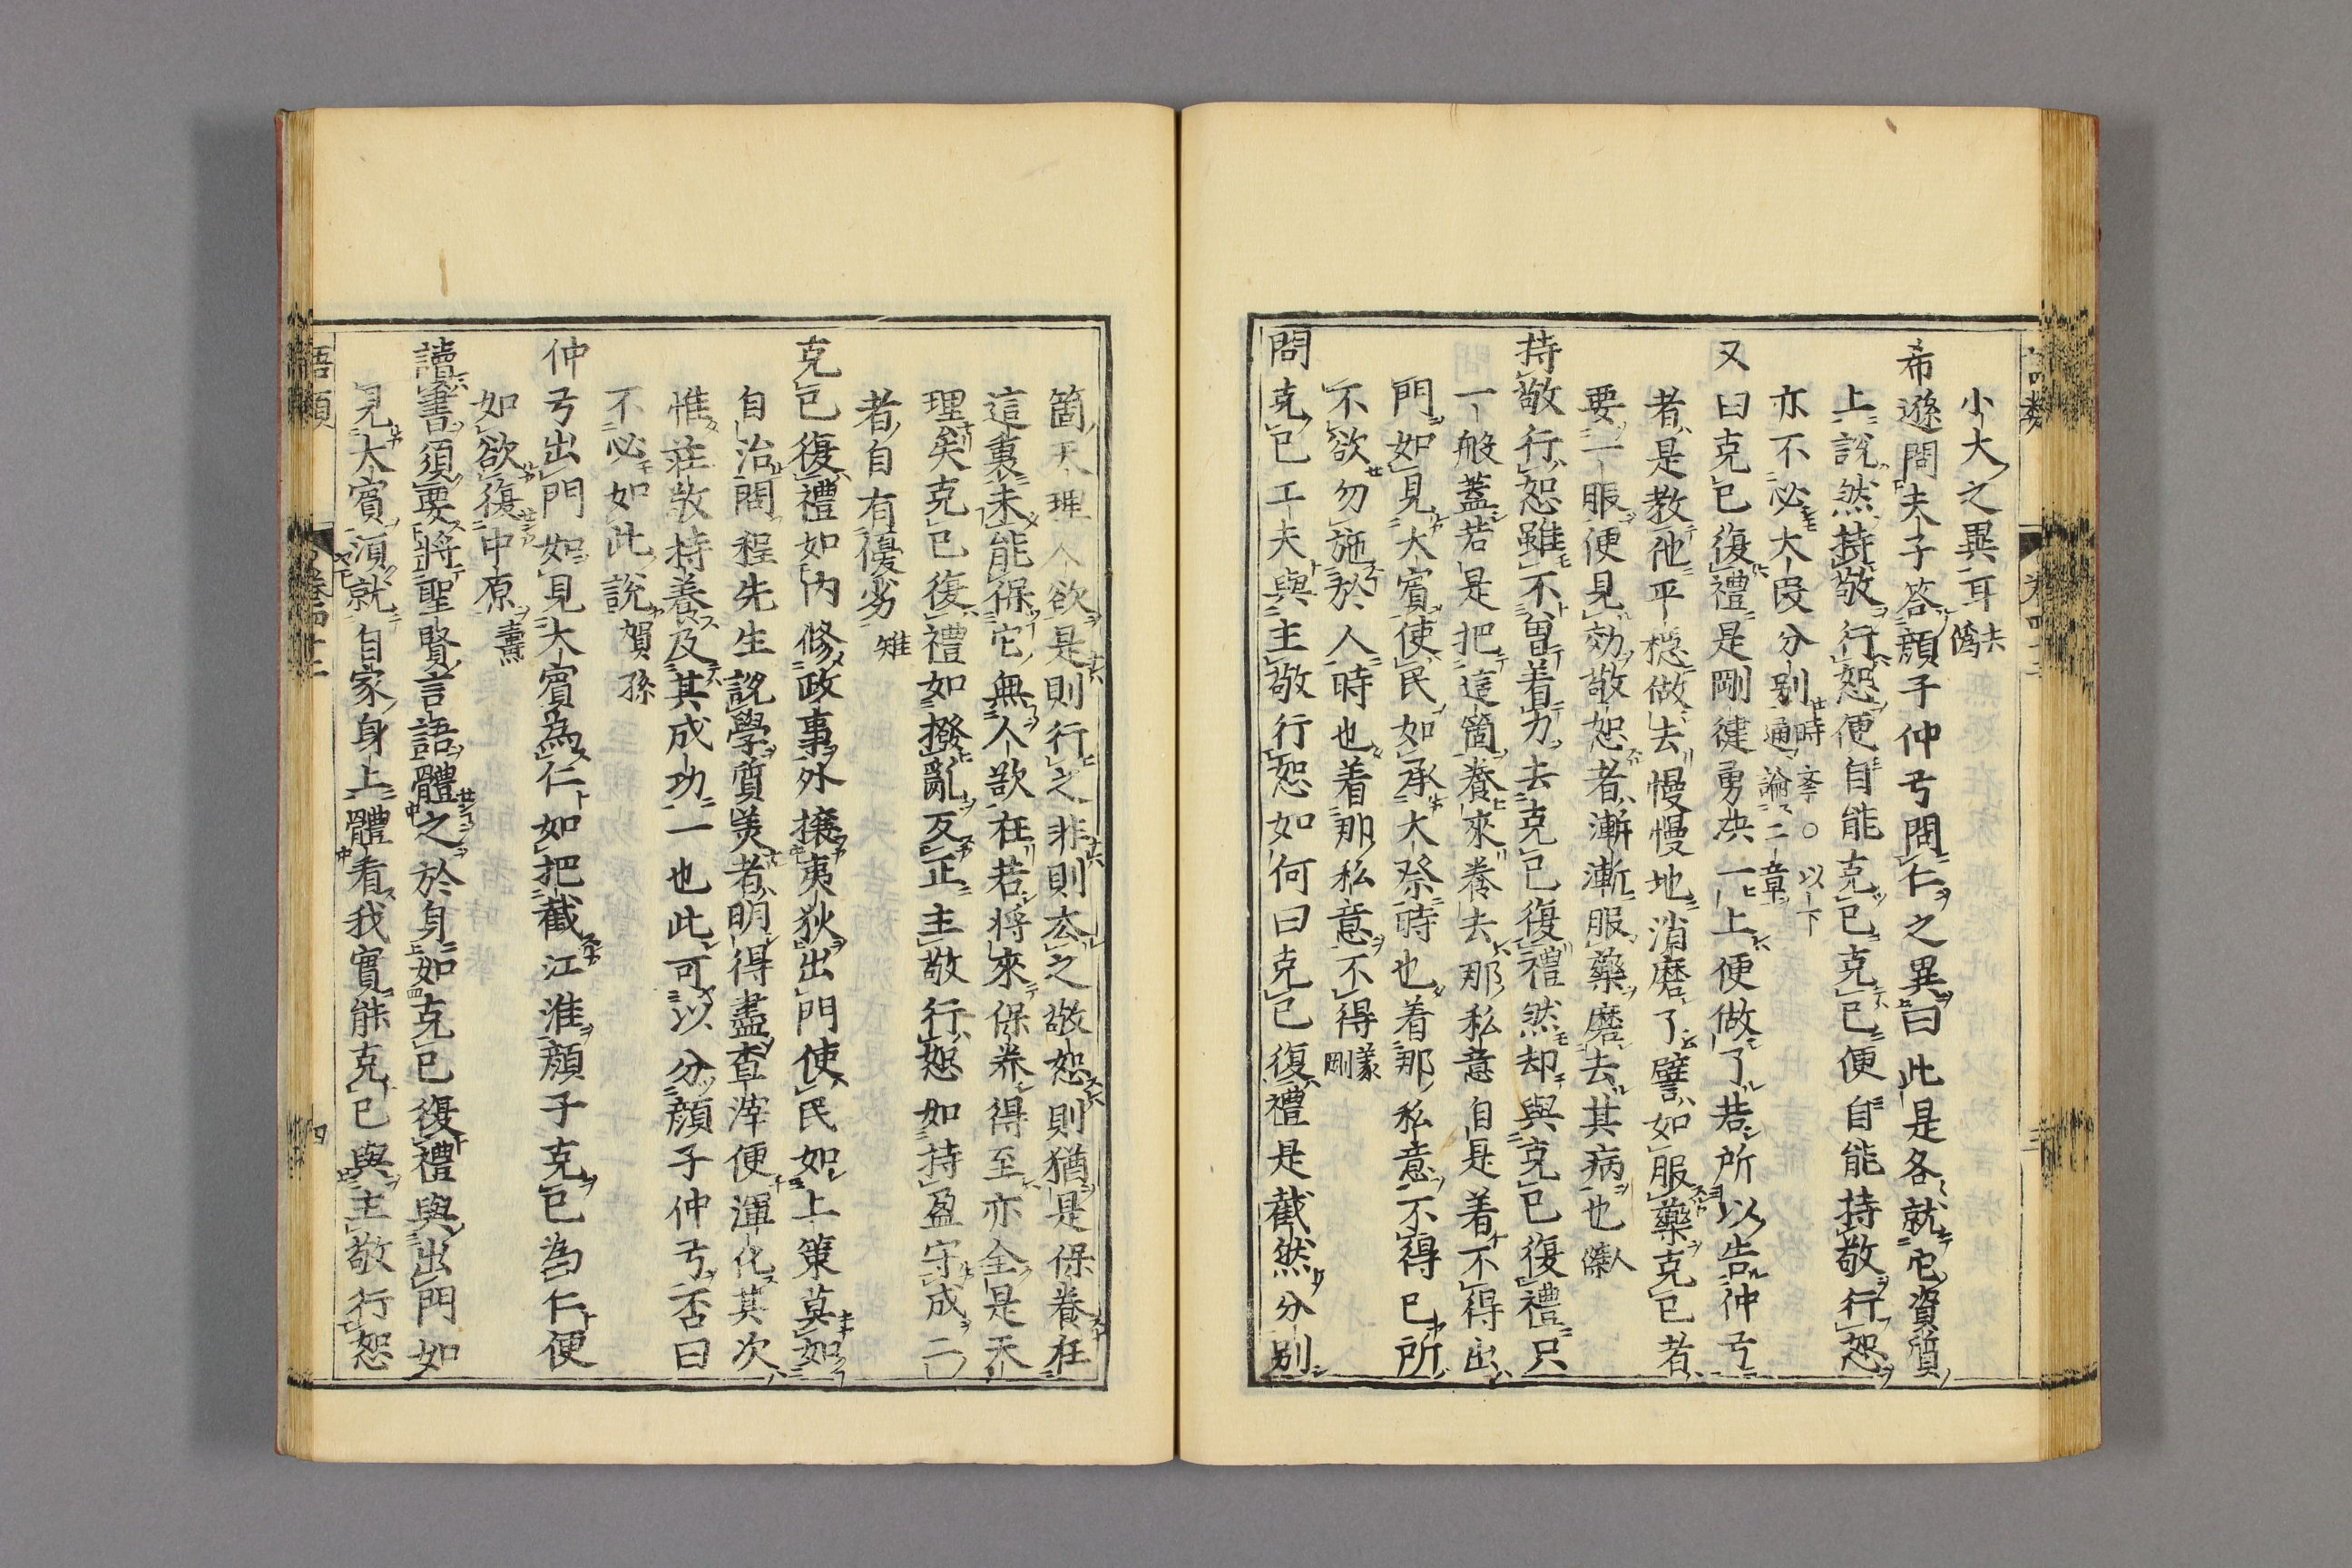 小大之異耳 去偽
希遜問夫子答顔子仲弓問仁之異曰此是各就它資質
上說然持敬行恕便自能克已克已便自能持敬行恕
亦不必大段分別 時孝○以下通論二章
又曰克已復禮是剛健勇决一上便做了若所以告仲弓
者是教他平穏做去慢慢地消磨了譬如服藥克已者
要一服便見効敬恕者漸漸服藥磨去其病也 人傑
持敬行恕雖不曽着力去克已復禮然却與克已復禮只
一般蓋若是把這箇養來養去那私意自是着不得出
門如見大賓使民如承大祭時也着那私意不得已所
不欲勿施於人時也着那私意不得 義剛
問克已工夫與主敬行恕如何曰克已復禮是截然分別
箇天理人欲是則行之非則去之敬恕則猶是保養在
這裏未能保它無人欲在若將來保養得至亦全是天
理矣克已復禮如撥亂反正主敬行恕如持盈守成二
者自有優劣 雉
克已復禮如内修政事外攘夷狄出門使民如上策莫如
自治問程先生說學質美者明得盡查滓便渾化其次
惟莊敬持養及其成功一也此可以分顔子仲弓否曰
不必如此說 賀孫
仲弓出門如見大賓為仁如把截江淮顔子克已為仁便
如欲復中原 燾
讀書須要將聖賢言語體之於身如克已復禮與出門如
見大賓須就自家身上體看我實能克已與主敬行恕
語類
卷四十二
四